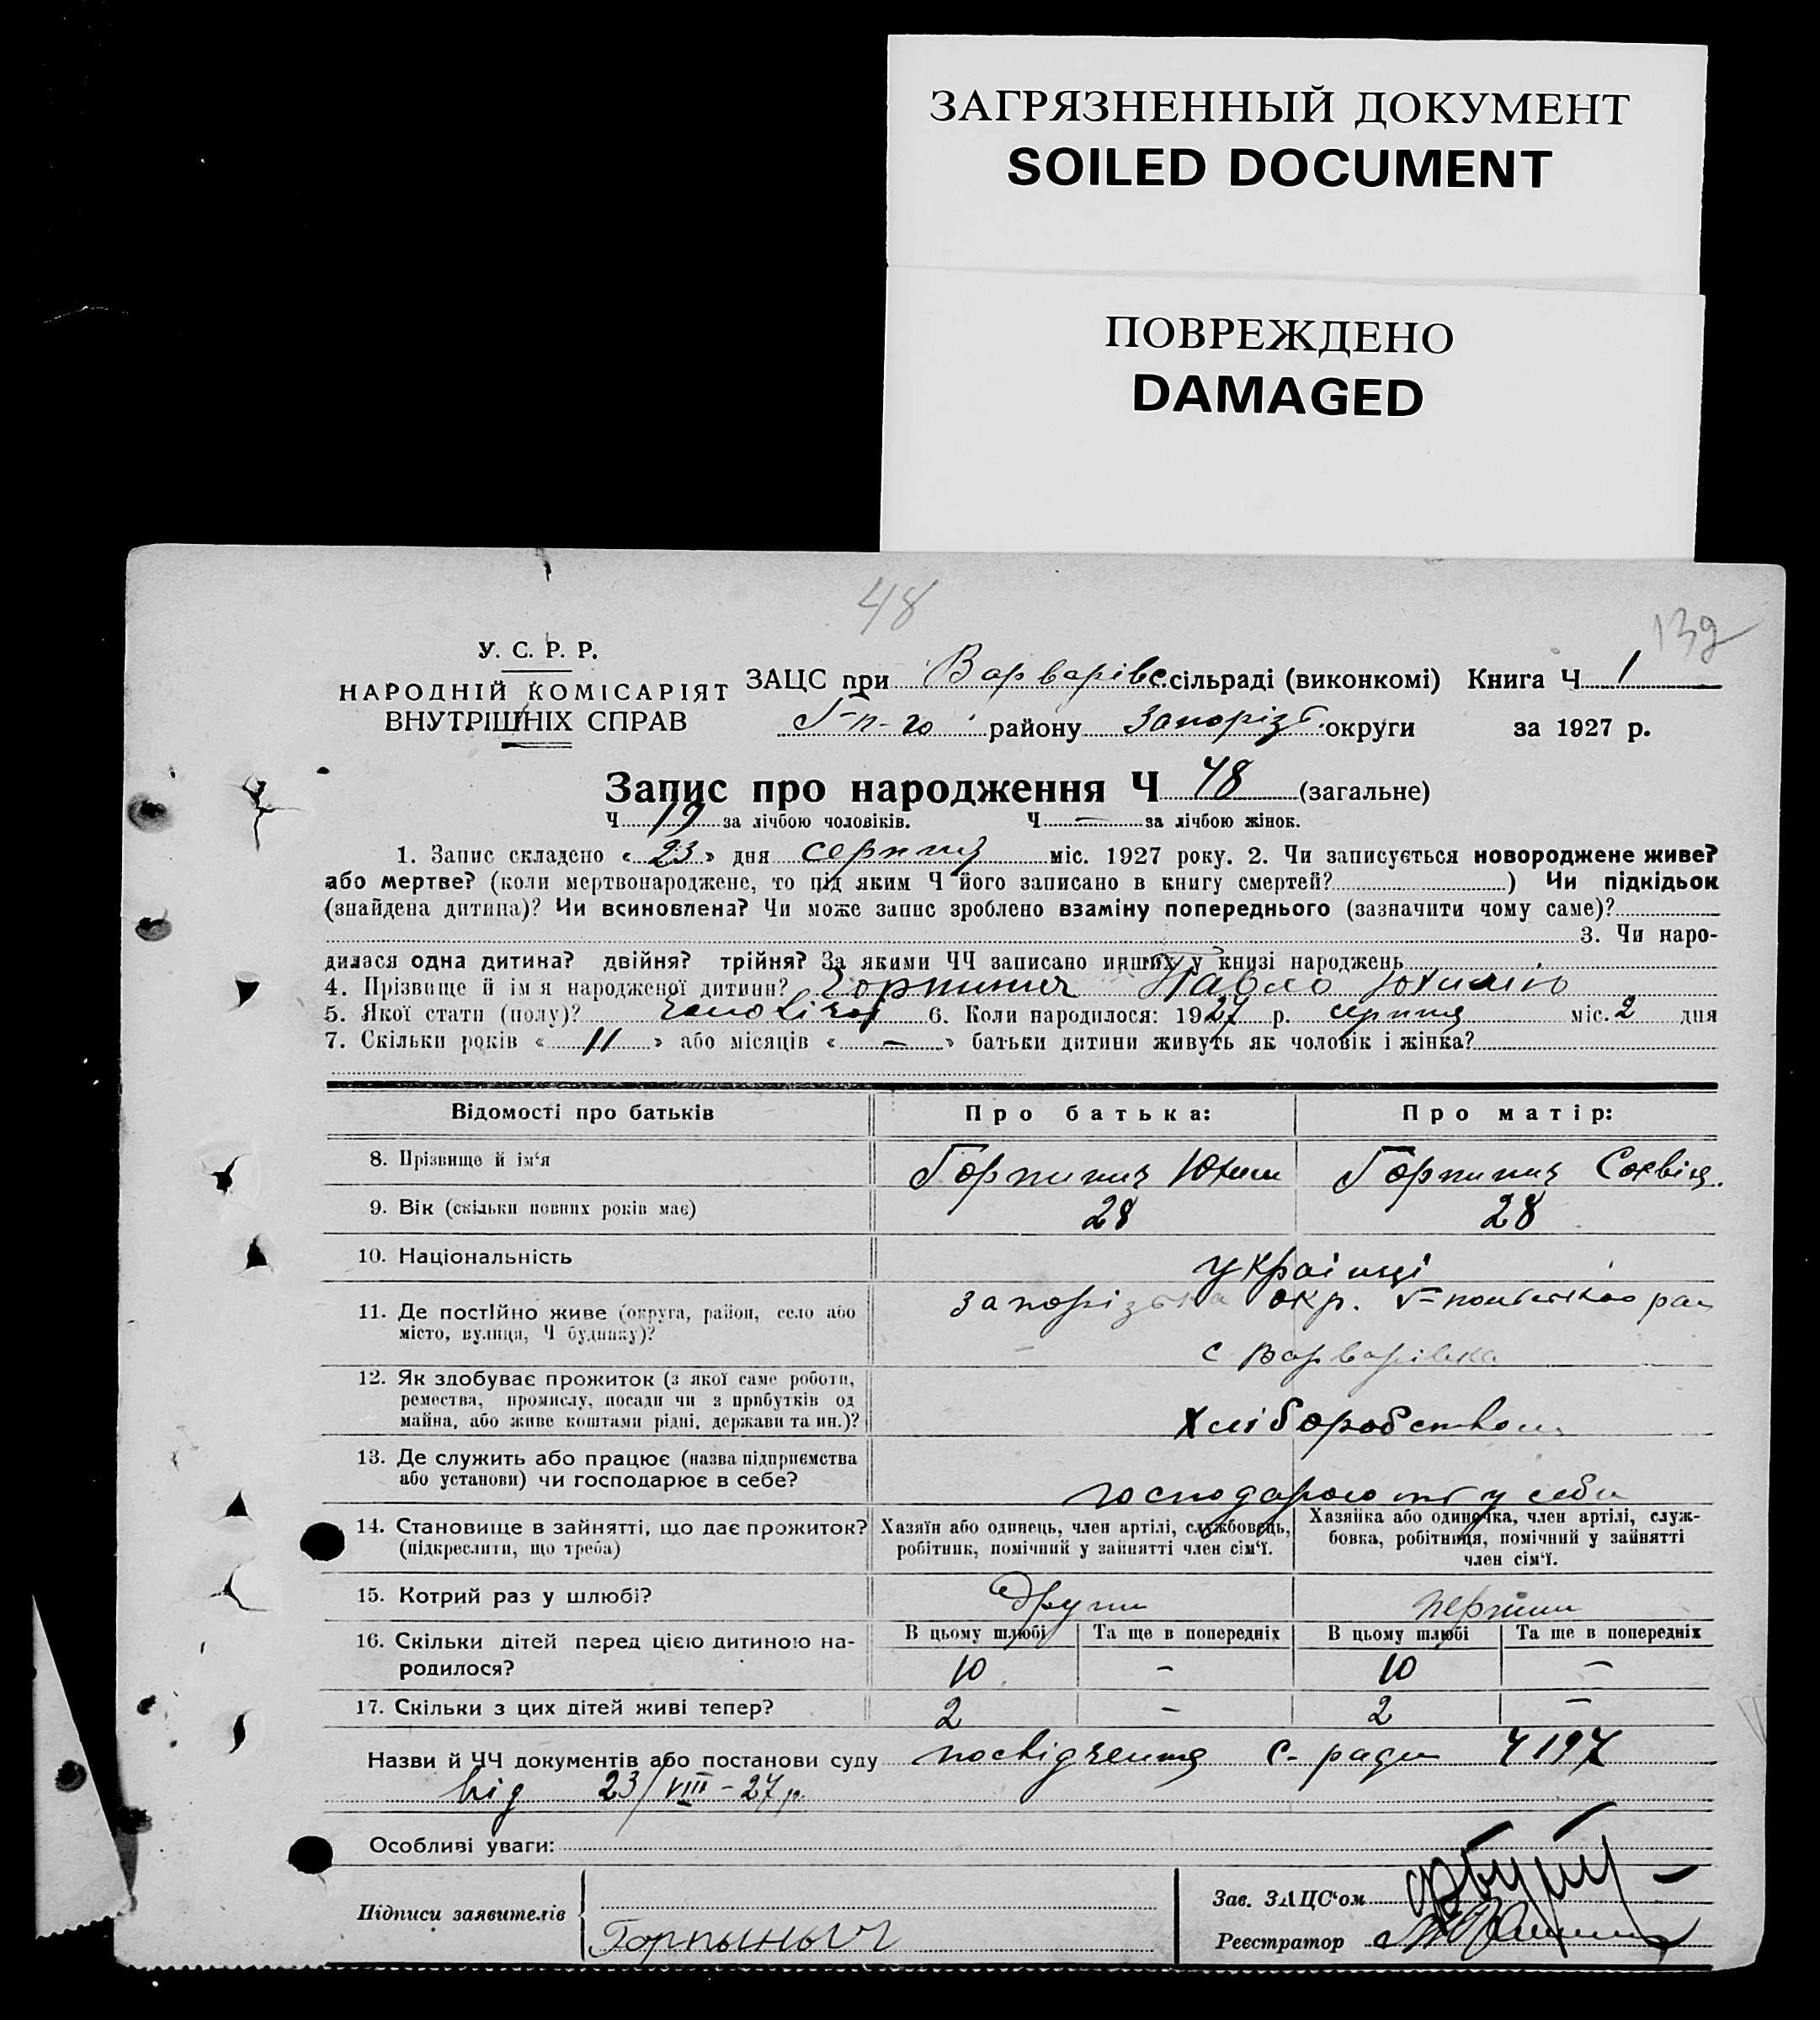 ЗАГРЯЗНЕННЫЙ ДОКУМЕНТ
SOILED DOCUMENT
ПОВРЕЖДЕНО
DAMAGED
48
У. С. Р. Р.
НАРОДНІЙ КОМІСАРІЯТ
ВНУТРІШНІХ СПРАВ
ЗАЦС при Варварівс. сільраді (виконкомі) Книга Ч 1
району Запорізь. округи за 1927 р.
Запис про народження Ч 48 (загальне)
Ч 19 за лічбою чоловіків. Ч — за лічбою жінок.
1. Запис складено « 23 » дня серпня міс. 1927 року. 2. Чи записується новороджене живе?
або мертве? (коли мертвонароджене, то під яким Ч його записано в книгу смертей? ) Чи підкідьок
(знайдена дитина)? Чи всиновлена? Чи може запис зроблено взаміну попереднього (зазначити чому саме)?
3. Чи наро-
дилася одна дитина? двійня? трійня? За якими ЧЧ записано инших у книзі народжень
4. Прізвище й ім я народженої дитини? Горпинич Павло Юхимів
5. Якої стати (полу)? чоловічої 6. Коли народилося: 1927 р. серпня міс. 2 дня
7. Скільки років « 11 » або місяців « — » батьки дитини живуть як чоловік і жінка?
Відомості про батьків Про батька: Про матір:
8. Прізвище й ім‘я Горпинич Юхим Горпинич Софвія.
9. Вік (скільки повних років має) 28 28
10. Національність українці
11. Де постійно живе (округа, район, село або Запорізька окр. рай
місто, вулиця, Ч будинку)? с Варварівка
12. Як здобуває прожиток (з якої саме роботи,
ремества, промислу, посади чи з прибутків од
майна, або живе коштами рідні, держави та ин.)? Хліборобством
13. Де служить або працює (назва підприємства
або установи) чи господарює в себе? господарюють у себе
14. Становище в зайнятті, що дає прожиток? Хазяїн або одинець, член артілі, службовець, Хазяйка або одиночка, член артілі, служ-
(підкреслити, що треба) робітник, помічний у зайнятті член сім‘ї. бовка, робітниця, помічний у зайнятті
член сім‘ї.
15. Котрий раз у шлюбі? други перший
16. Скільки дітей перед цією дитиною на- В цьому шлюбі Та ще в попередніх В цьому шлюбі Та ще в попередніх
родилося? 10 — 10 —
17. Скільки з цих дітей живі тепер? 2 — 2 —
Назви й ЧЧ документів або постанови суду посвідчення С- ради Ч 197
від 23/VIII-27р.
Особливі уваги:
Підписи заявителів
Горпыныч
Зав. ЗАЦС‘ом
Реєстратор